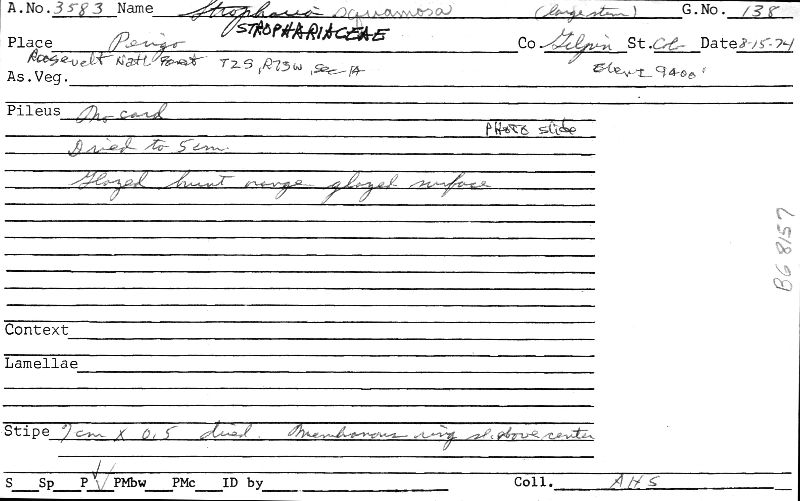 A.No. 3583 Name Stropharia squamosa (large stem) G.No. 138
STROPHARIACEAE
Place Perigo Co Gilpin St. CO Date 8-15-74
Roosevelt Natl Forest T2S, R73W, Sec 1A Elev. 9400'
As.Veg.
Pileus No card
PHOTO slide
Dried to 5 cm.
Glazed burnt orange glazed surface
BG 8157
Context
Lamellae
Stipe 7 cm X 0.5 dried. Membranous ring sl. above center
S Sp P ✓ PMbw PMc ID by Coll. AHS